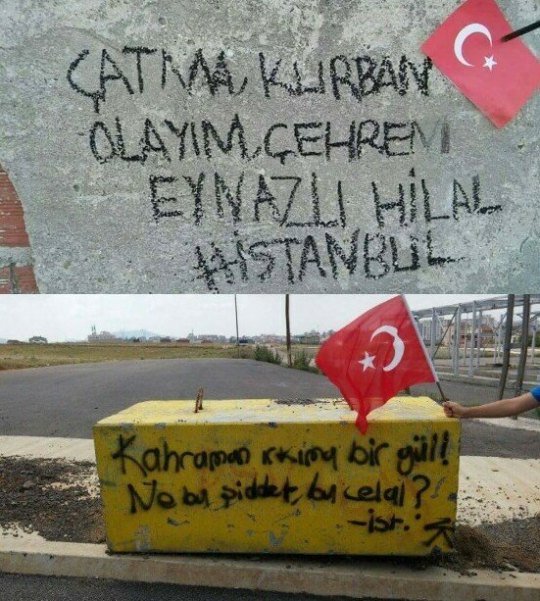 ÇATMA, KURBAN
OLAYIM, ÇEHREMİ
EY NAZLI HİLAL
#İSTANBUL
Kahraman ırkıma bir gül!
Ne bu şiddet, bu celal?
-ist.